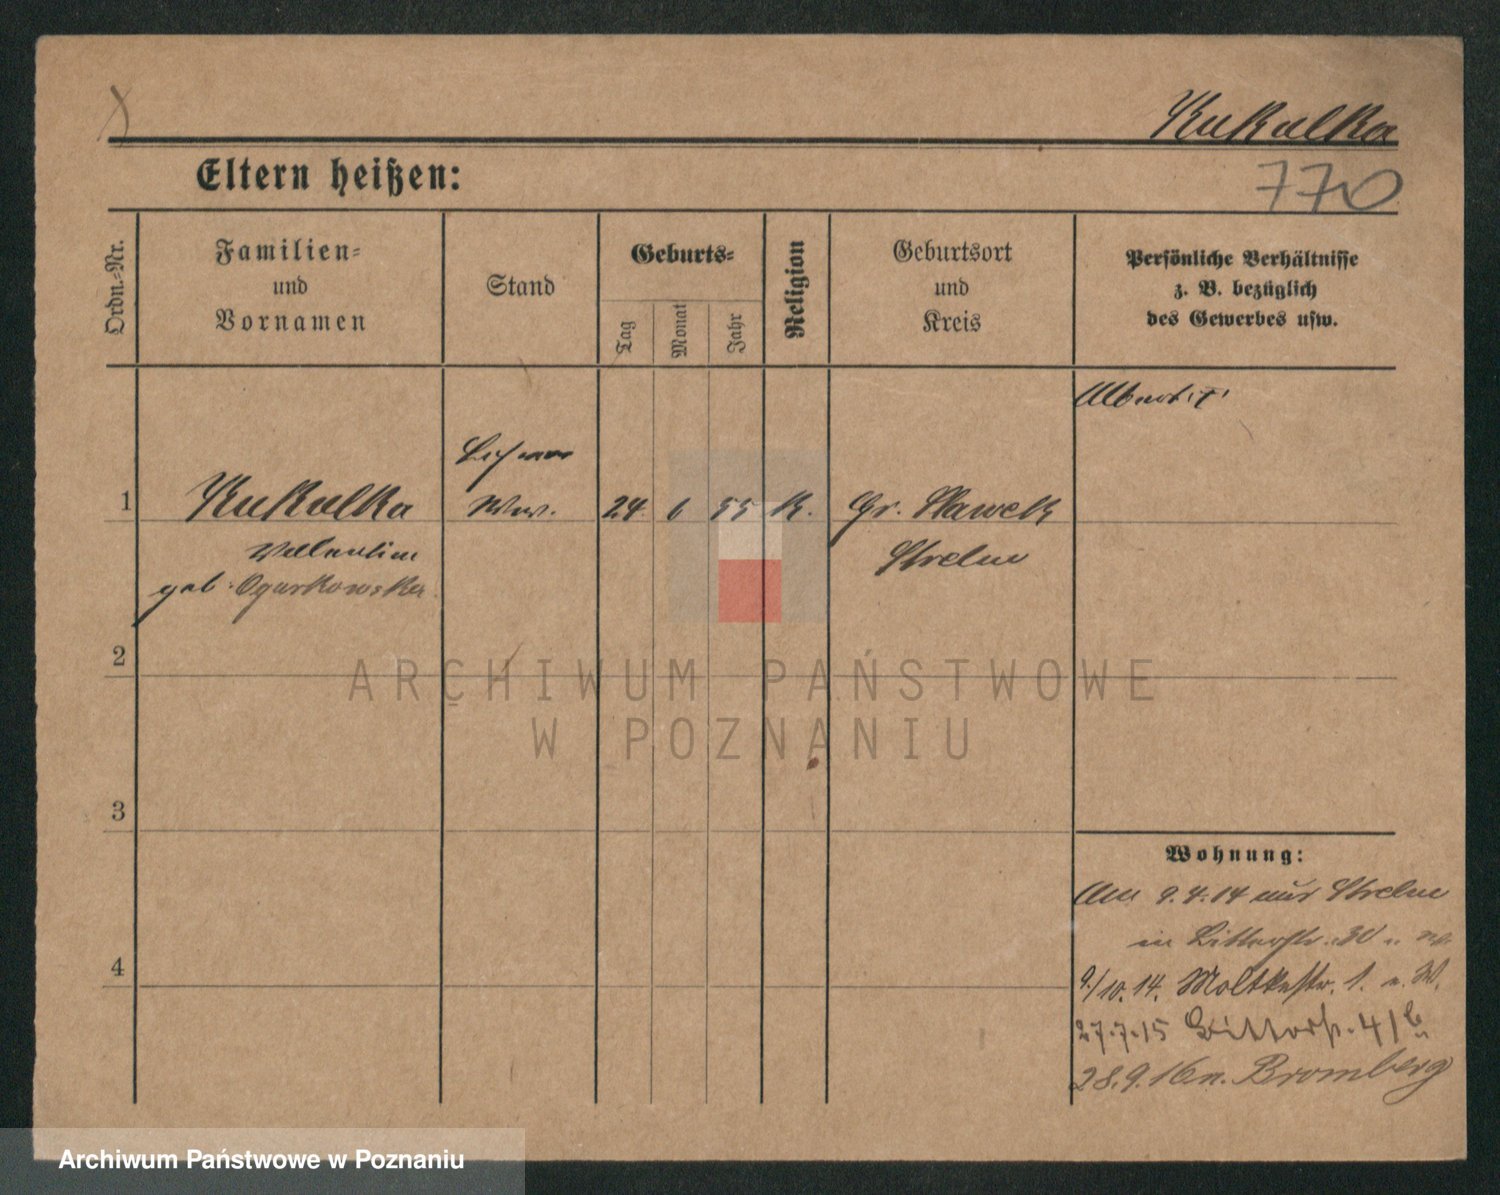 Kukulka
Eltern heißen:
770
Ordn.-Nr.
Familien-
und
Vornamen
Stand
Geburts-
Tag
Monat
Jahr
Religion
Geburtsort
und
Kreis
Persönliche Verhältnisse
z. B. bezüglich
des Gewerbes usw.
1
Kukulka
Ww.
24
6
55
K.
Gr. Slawsk
Strelno
Valentine
geb. Ogurkowska
2
ARCHIWUM PAŃSTWOWE
W POZNANIU
3
4
Wohnung:
Am 9.4.14 aus Strelno
in
9./10.14. Moltkestr. 1.
27.7.15
28.9.16 n. Bromberg
Archiwum Państwowe w Poznaniu